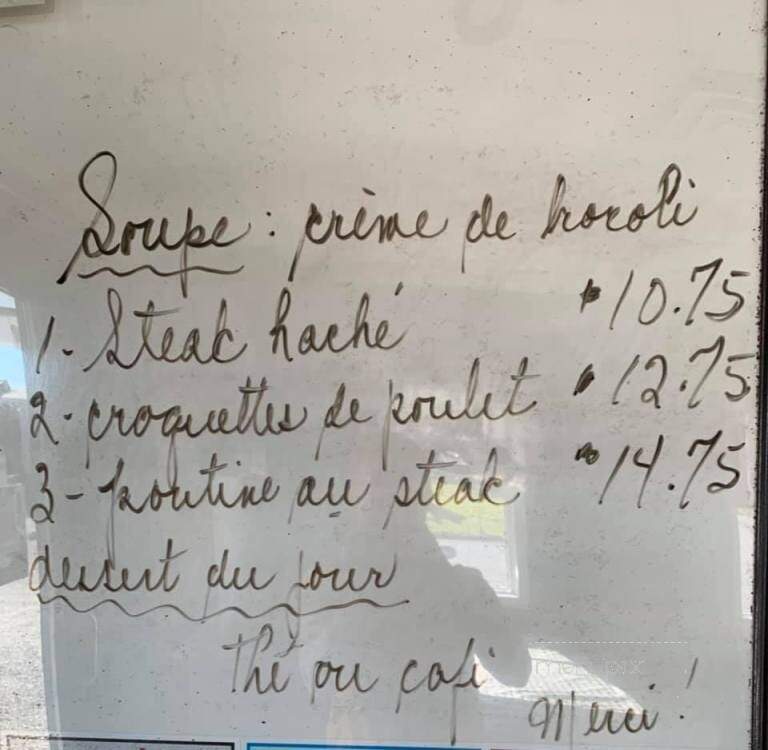 Soupe : crème de brocoli
1- Steak haché $10.75
2- croquettes de poulet $12.75
3- poutine au steak $14.75
dessert du jour
thé ou café
Merci !
menupix